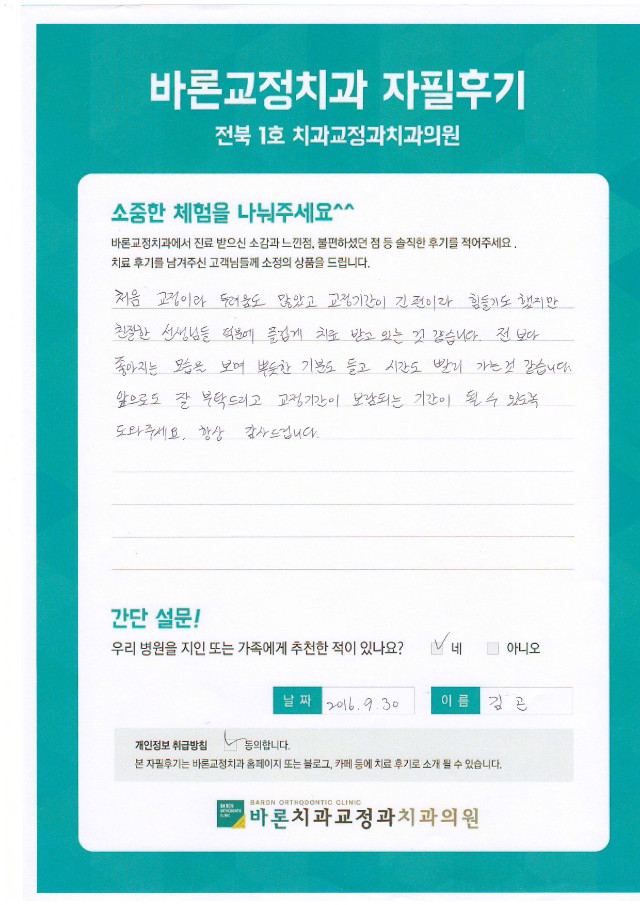 바론교정치과 자필후기
전북 1호 치과교정과치과의원
소중한 체험을 나눠주세요^^
바론교정치과에서 진료 받으신 소감과 느낀점, 불편하셨던 점 등 솔직한 후기를 적어주세요.
치료 후기를 남겨주신 고객님들께 소정의 상품을 드립니다.
처음 교정이라 두려움도 많았고 교정기간이 긴편이라 힘들기도 했지만
친절한 선생님들 덕분에 즐겁게 치료 받고 있는 것 같습니다. 전 보다
좋아지는 모습을 보며 뿌듯한 기분도 들고 시간도 빨리 가는것 같습니다.
앞으로도 잘 부탁드리고 교정기간이 보람되는 기간이 될 수 있도록
도와주세요. 항상 감사드립니다.
간단 설문!
우리 병원을 지인 또는 가족에게 추천한 적이 있나요? 네 아니오
날 짜 2016. 9. 30 이 름 김 곤
개인정보 취급방침 동의합니다.
본 자필후기는 바론교정치과 홈페이지 또는 블로그, 카페 등에 치료 후기로 소개 될 수 있습니다.
BARON ORTHODONTIC CLINIC
바론치과교정과치과의원